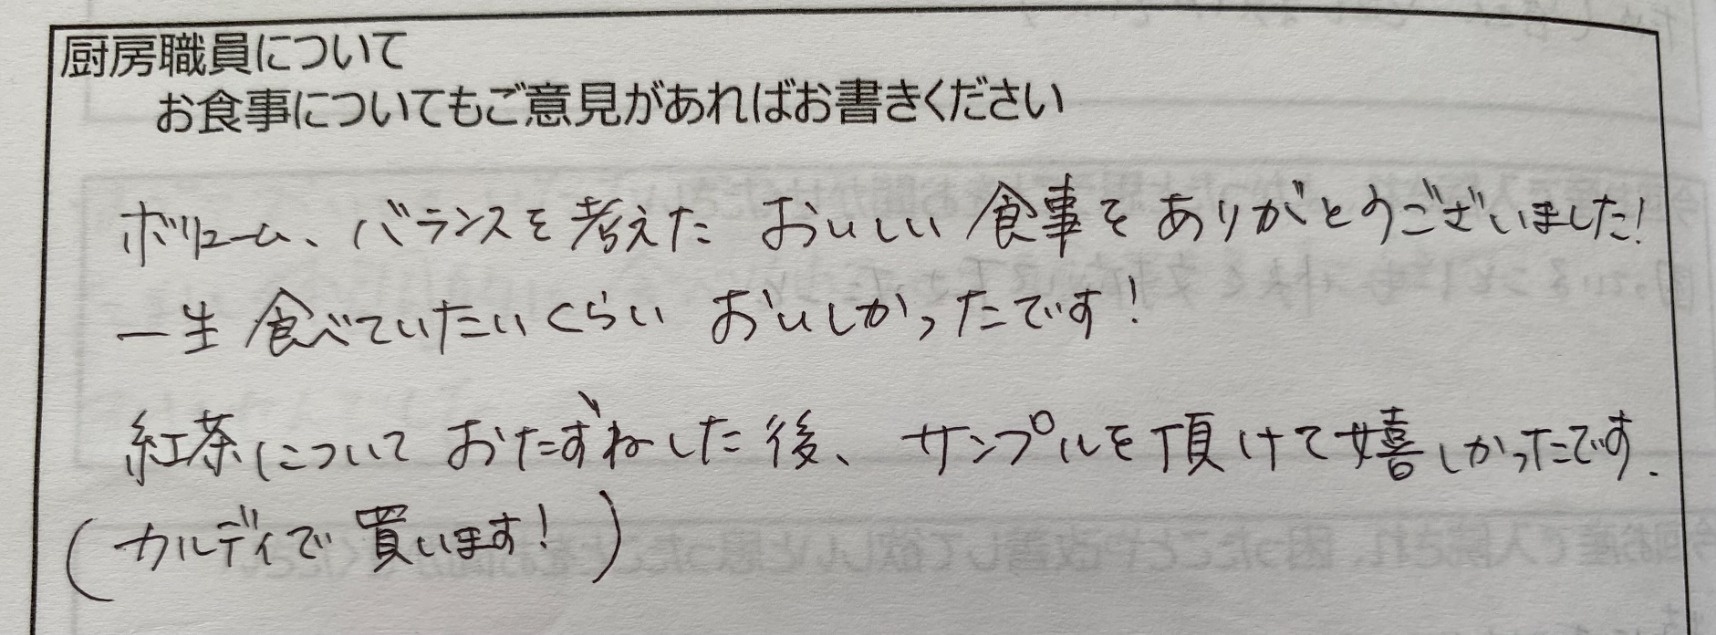 厨房職員について
お食事についてもご意見があればお書きください
ボリューム、バランスを考えた おいしい 食事を ありがとうございました!
一生 食べていたいくらい おいしかったです!
紅茶について おたずねした後、サンプルを頂けて嬉しかったです.
(カルディで買います!)